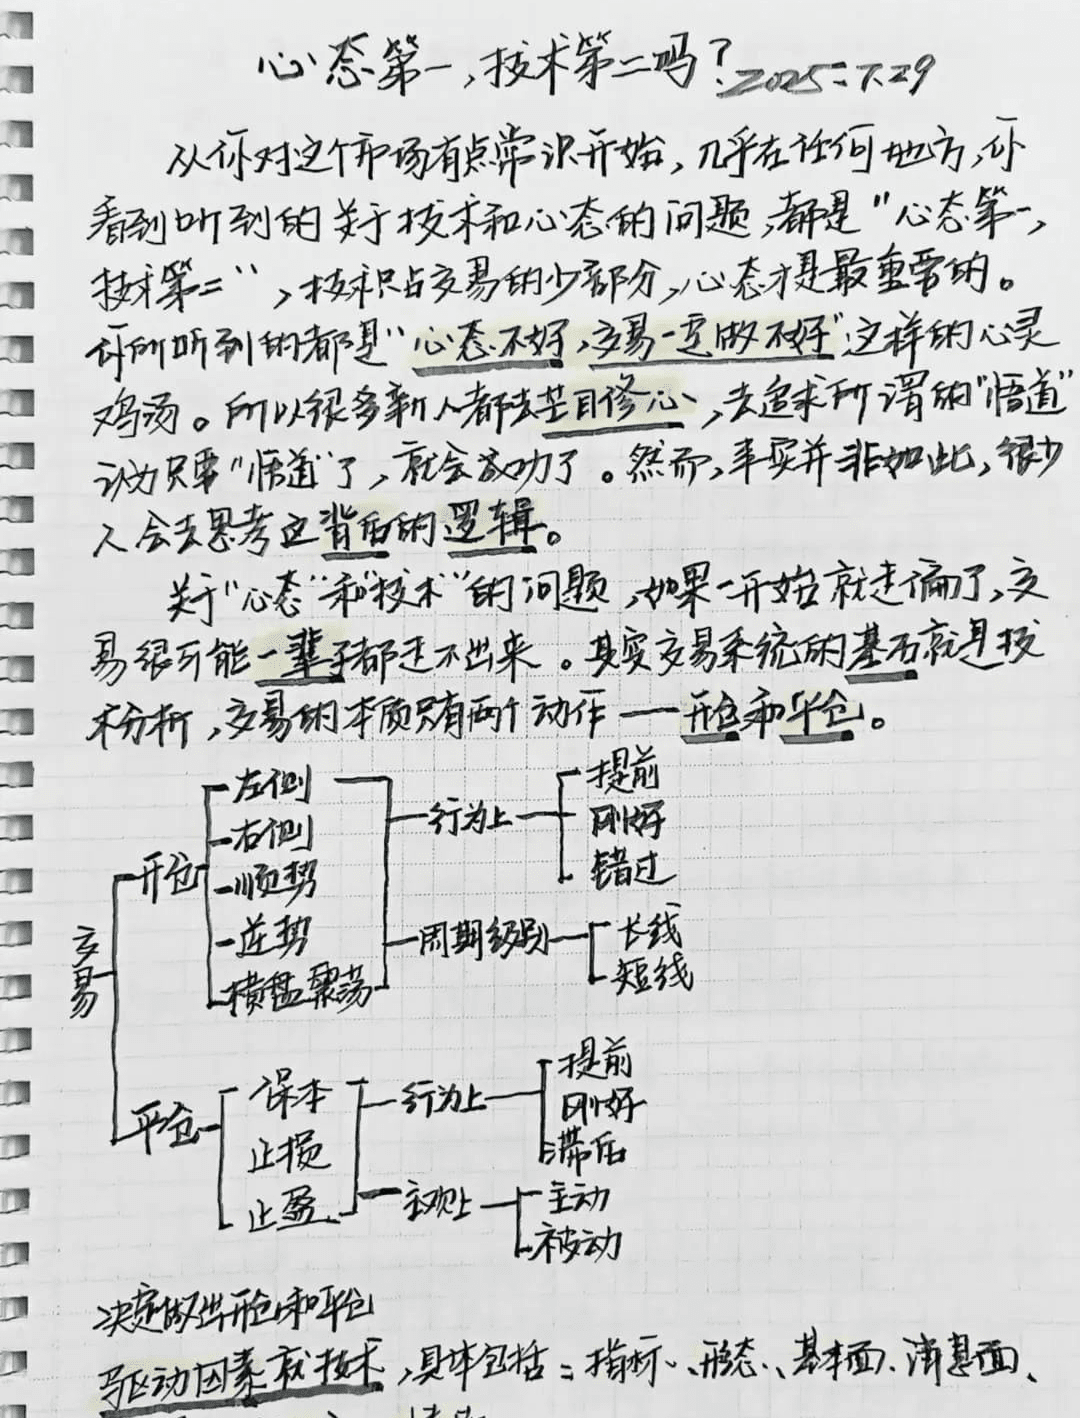 心态第一,技术第二吗? 2025.7.29
从你对这个市场有点常识开始,几乎在任何地方,你
看到听到的关于技术和心态的问题,都是"心态第一,
技术第二",技术只占交易的少部分,心态才是最重要的。
你所听到的都是"心态不好,交易一定做不好"这样的心灵
鸡汤。所以很多新人都去盲目修心,去追求所谓的"悟道"
认为只要"悟道"了,就会成功了。然而,事实并非如此,很少
人会去思考这背后的逻辑。
关于"心态"和"技术"的问题,如果一开始就走偏了,交
易很可能一辈子都走不出来。其实交易系统的基石就是技
术分析,交易的本质只有两个动作——开仓和平仓。
交易
开仓
左侧
右侧
顺势
逆势
横盘震荡
行为上
提前
刚好
错过
周期级别
长线
短线
平仓
保本
止损
止盈
行为上
提前
刚好
滞后
主观上
主动
被动
决定做出开仓和平仓
驱动因素就技术,具体包括:指标、形态、基本面、消息面、